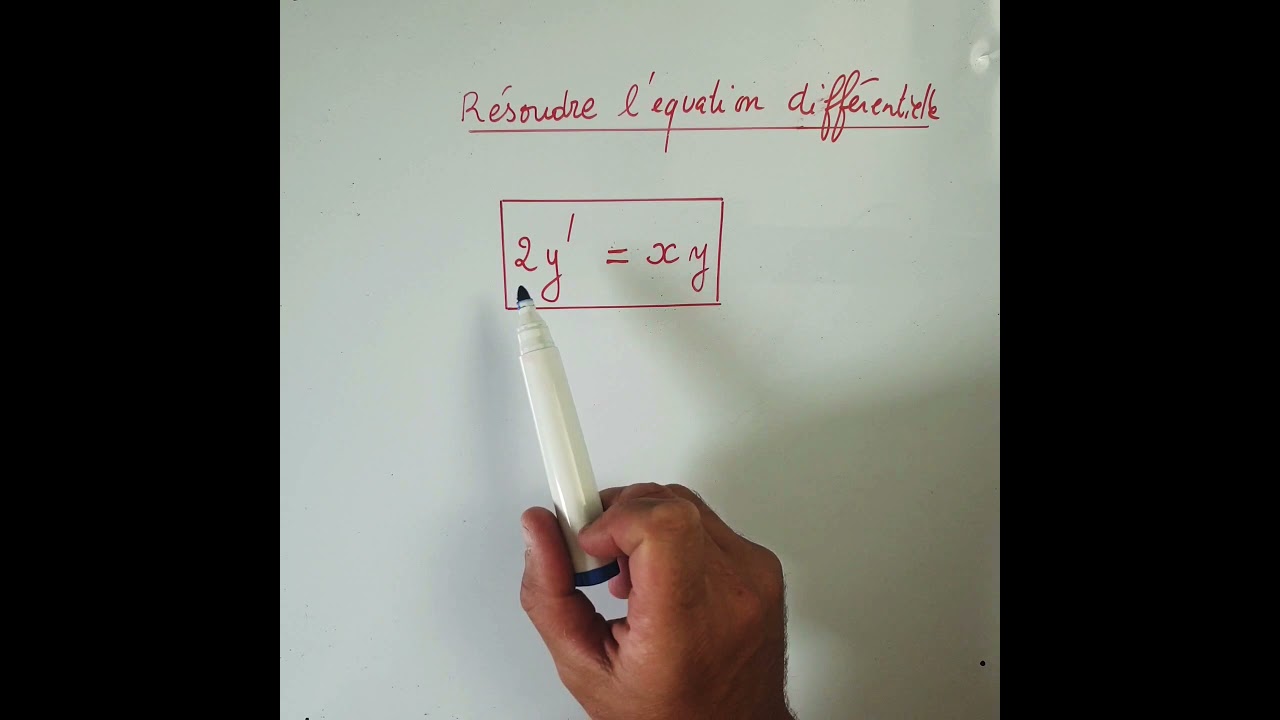 Résoudre l'équation différentielle
2y' = xy